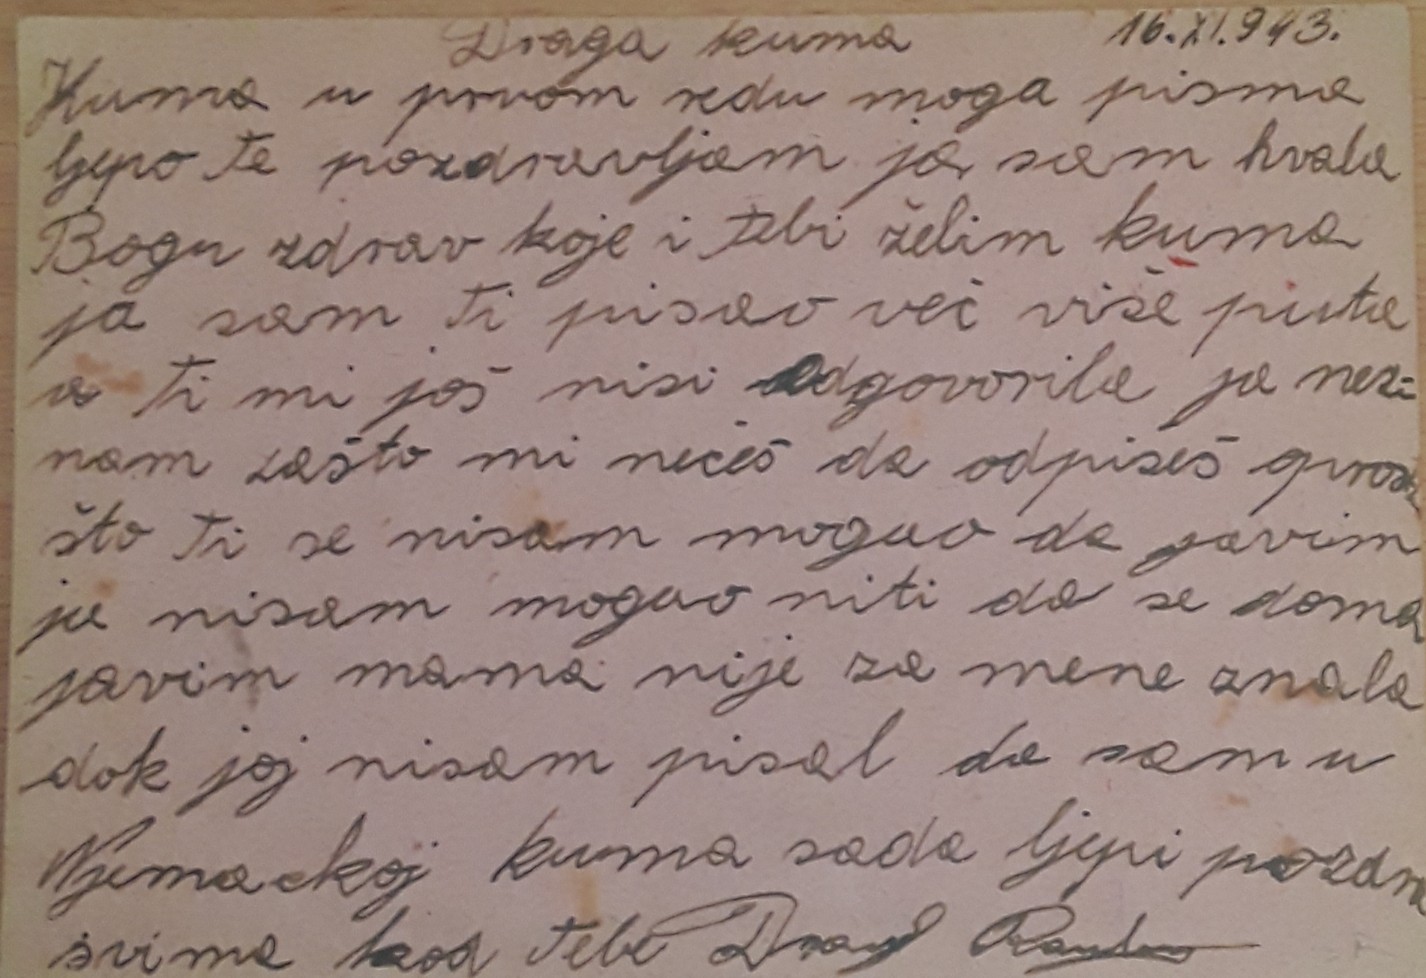 Draga kuma 16.XI.943.
Kuma u prvom redu moga pisma
ljepo te pozdravljam ja sam hvala
Bogu zdrav koje i tebi želim kuma
ja sam ti pisao već više puta
a ti mi još nisi odgovorila ja nez=
nam zašto mi nećeš da odpišeš oprosti
što ti se nisam mogao da javim
ja nisam mogao niti da se doma
javim mama nije za mene znala
dok joj nisam pisal da sam u
Njemackoj kuma sada ljepi pozdrav
svima kod tebe